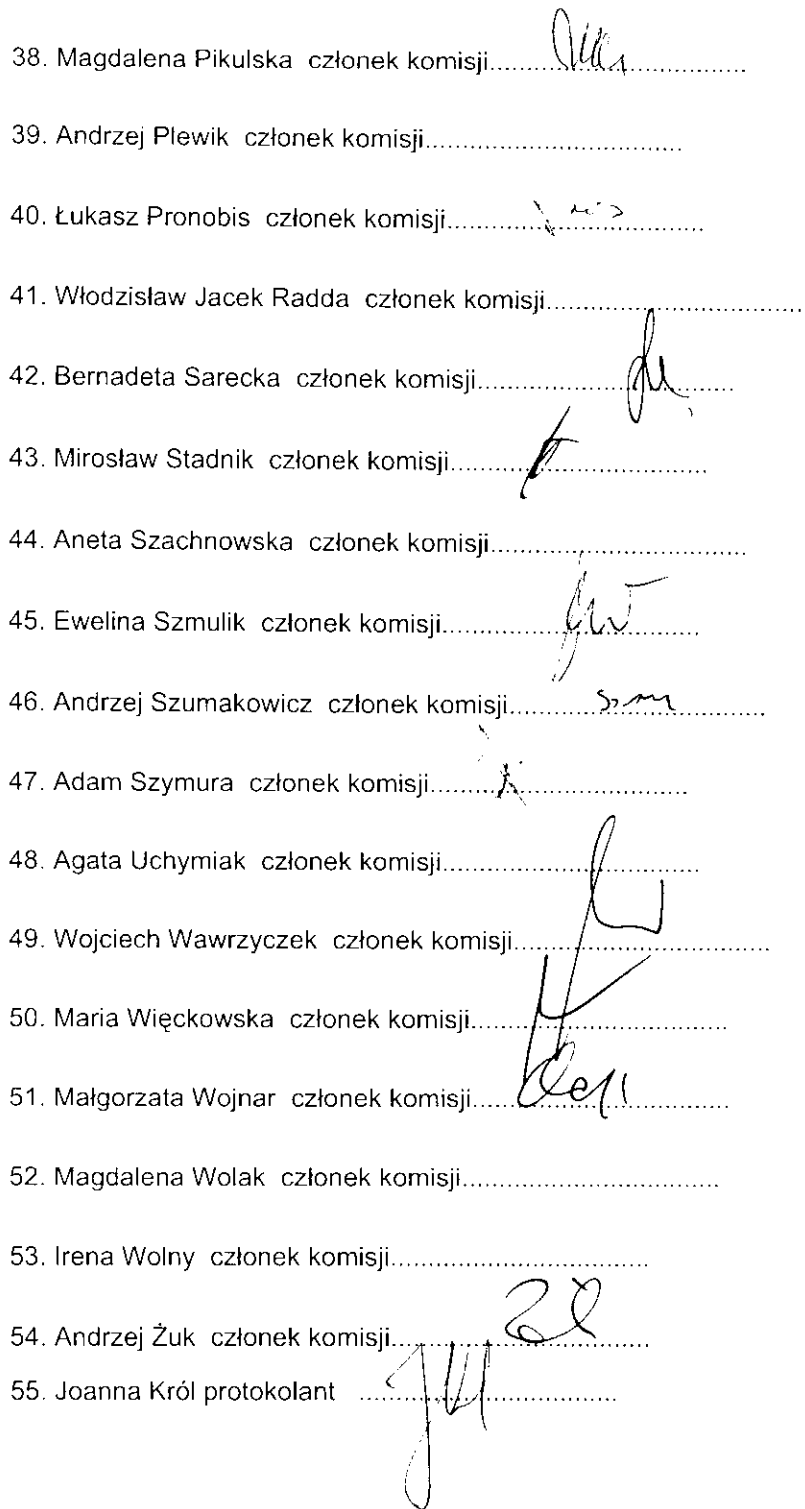 38. Magdalena Pikulska członek komisji..........................................
39. Andrzej Plewik członek komisji..........................................
40. Łukasz Pronobis członek komisji..........................................
41. Włodzisław Jacek Radda członek komisji..........................................
42. Bernadeta Sarecka członek komisji..........................................
43. Mirosław Stadnik członek komisji..........................................
44. Aneta Szachnowska członek komisji..........................................
45. Ewelina Szmulik członek komisji..........................................
46. Andrzej Szumakowicz członek komisji..........................................
47. Adam Szymura członek komisji..........................................
48. Agata Uchymiak członek komisji..........................................
49. Wojciech Wawrzyczek członek komisji..........................................
50. Maria Więckowska członek komisji..........................................
51. Małgorzata Wojnar członek komisji..........................................
52. Magdalena Wolak członek komisji..........................................
53. Irena Wolny członek komisji..........................................
54. Andrzej Żuk członek komisji..........................................
55. Joanna Król protokolant ..........................................